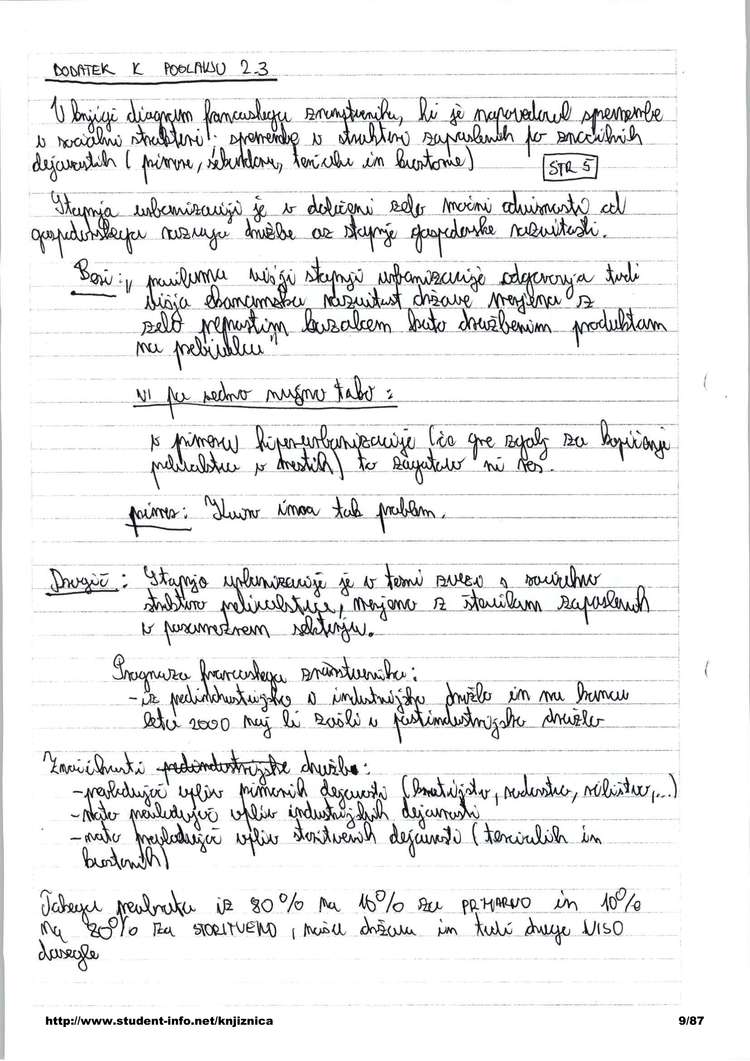 DODATEK K POGLAVJU 2.3
V knjigi diagram francoskega znanstvenika, ki je napovedoval spremembe
v socialni strukturi: spremembe v strukturi zaposlenih po značilnih
dejavnostih (primarne, sekundarne, terciarne in kvartarne)
STR 5
Stopnja urbanizacije je v določeni zelo močni odvisnosti od
gospodarskega razvoja družbe oz stopnje gospodarske razvitosti.
Beri: "praviloma višji stopnji urbanizacije odgovarja tudi
višja ekonomska razvitost države merjena z
zelo preprostim kazalcem kato družbenim produktom
na prebivalca"
NI pa vedno nujno tako:
v primeru hiperurbanizacije (če gre zgolj za kopičenje
prebivalstva v mestih) to zagotovo ni res.
primer: imora tak problem.
Drugič: Stopnja urbanizacije je v tesni zvezi s socialno
strukturo prebivalstva, merjeno z številom zaposlenih
v posameznem sektorju.
Prognoza francoskega znanstvenika:
- iz predindustrijske v industrijsko družbo in na koncu
leta 2000 naj bi zašli v postindustrijsko družbo
Značilnosti predindustrijske družbe:
- prevladujoč vpliv primarnih dejavnosti (kmetijstvo, rudarstvo, ribištvo,...)
- nato prevladujoč vpliv industrijskih dejavnosti
- nato prevladujoč vpliv storitvenih dejavnosti (terciarnih in
kvartarnih)
Takega preobrata iz 80% na 10% za PRIMARNO in 10%
na 80% za STORITVENO, naša država in tudi druge NISO
dosegle
http://www.student-info.net/knjiznica
9/87